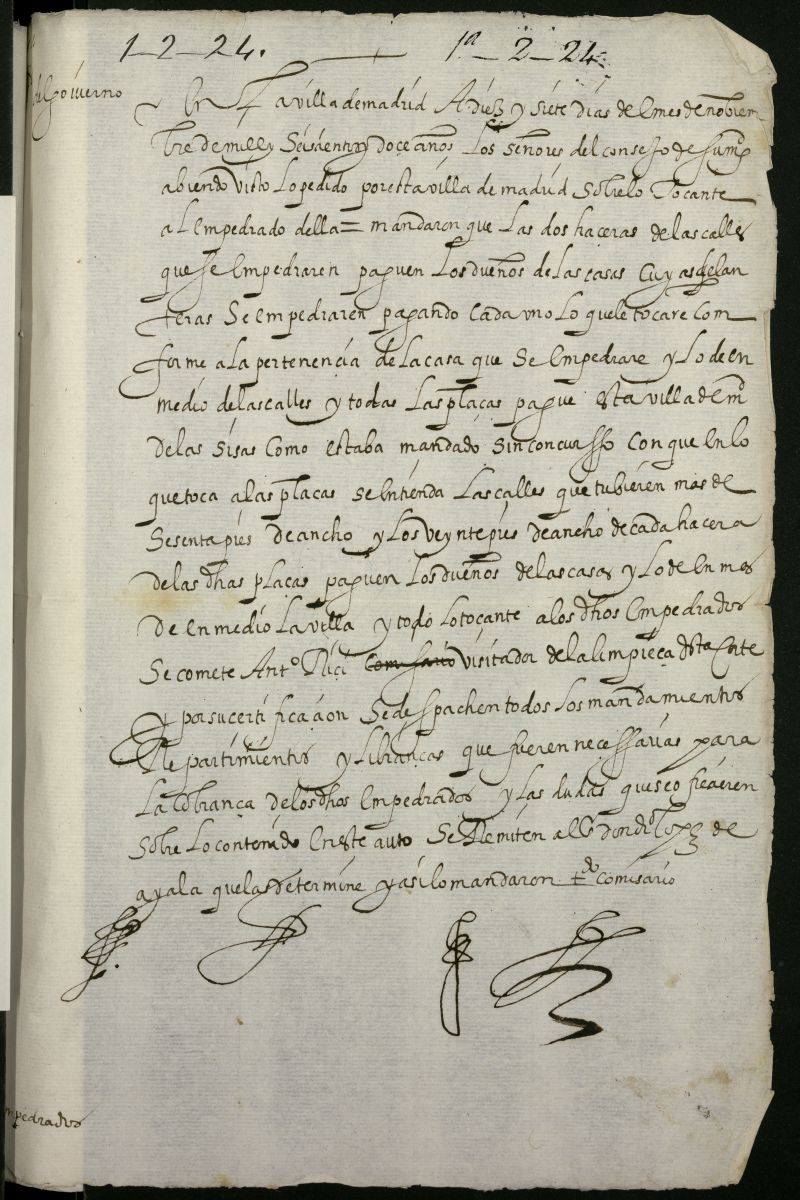 1-2-24. 1ª 2-24.
de Govierno
En la villa de madrid A diez y siete dias del mes de nobiem
bre de mill y Seiscientos y doce años Los señores del consejo de su mgd
abiendo visto Lo pedido por esta villa de madrid sobre lo Tocante
al empedrado della = mandaron que Las dos haceras de las calles
que se empedraren paguen Los dueños de las casas cuyas delan
teras Se empedraren pagando cada uno Lo que le tocare com
forme a la pertenencia de la casa que Se empedrare y Lo de en
medio de las calles y todas Las plaças pague esta villa de md
de las sisas como estaba mandado sin concursso con que en lo
que toca a las plaças se entienda Las calles que tubieren mas de
Sesenta pies de ancho y Los veynte pies de ancho de cada hacera
de las dhas plaças paguen Los dueños de las casas y Lo de en mes
de en medio La villa y todo lo tocante a los dhos empedrados
Se comete Antº Riçi comisario visitador de la limpieça desta corte
y por su certificaçion Se despachen todos Los mandamientos
Repartimientos y Libranças que fueren necessarias para
La cobrança de los dhos empedrados y Las dudas que se ofreçieren
sobre Lo contenido en este auto Se Remiten al Sr don diº Lopez de
ayala que las determine y asi lo mandaron tdo comisario
empedrados